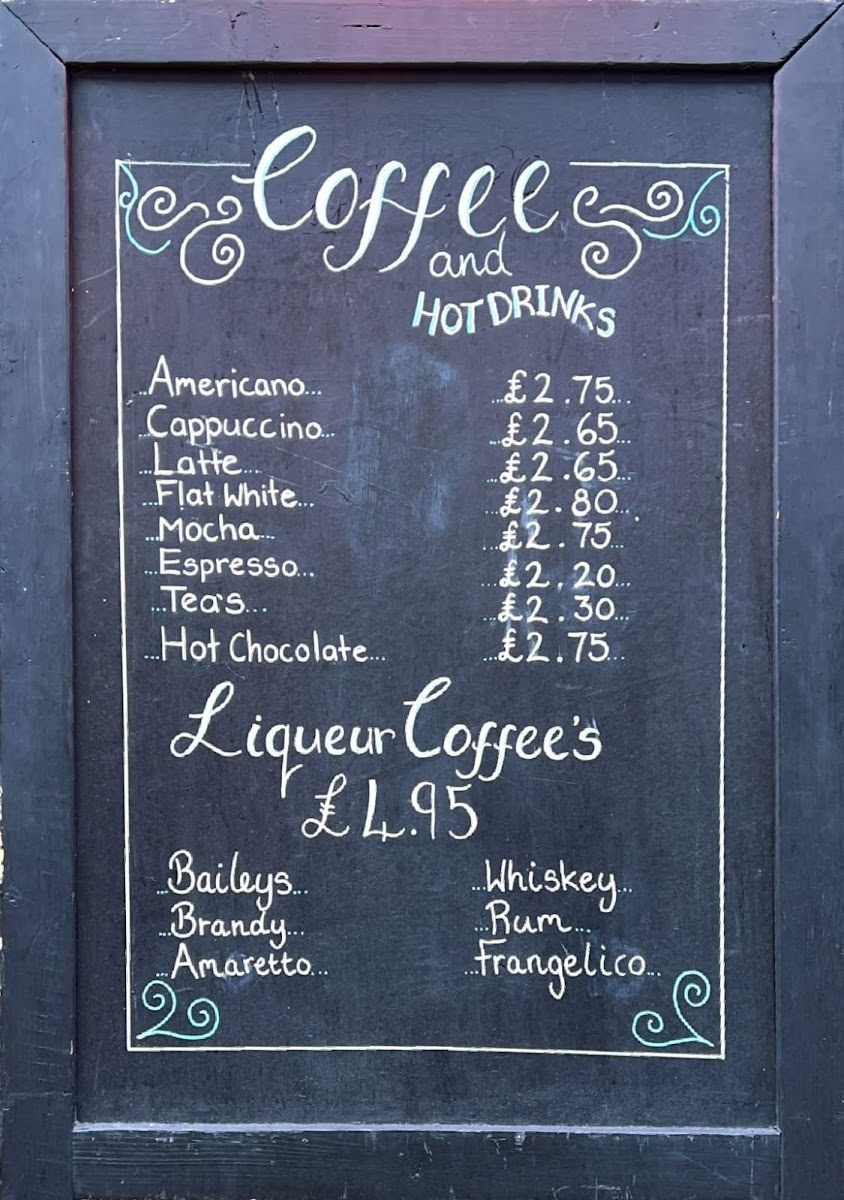 Coffee
and
HOT DRINKS
...Americano... ...£2.75...
...Cappuccino... ...£2.65...
...Latte... ...£2.65...
...Flat White... ...£2.80...
...Mocha... ...£2.75...
...Espresso... ...£2.20...
...Tea's... ...£2.30...
...Hot Chocolate... ...£2.75...
Liqueur Coffee's
£4.95
...Baileys... ...Whiskey...
...Brandy... ...Rum...
...Amaretto... ...Frangelico...